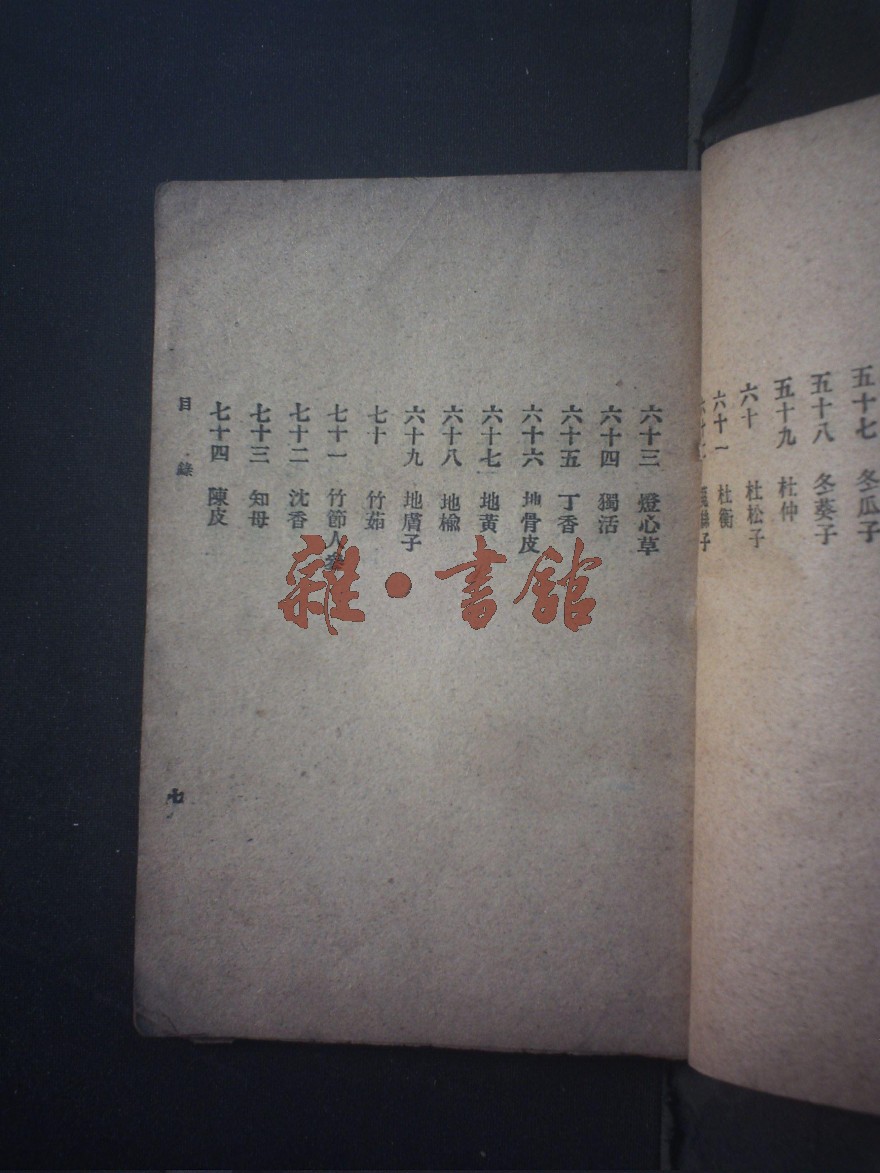 五十七 冬瓜子
五十八 冬葵子
五十九 杜仲
六十 杜松子
六十一 杜衡
子
六十三 燈心草
六十四 獨活
六十五 丁香
六十六 地骨皮
六十七 地黃
六十八 地楡
六十九 地膚子
七十 竹茹
七十一 竹節人參
七十二 沈香
七十三 知母
七十四 陳皮
目錄
七
雜·書館